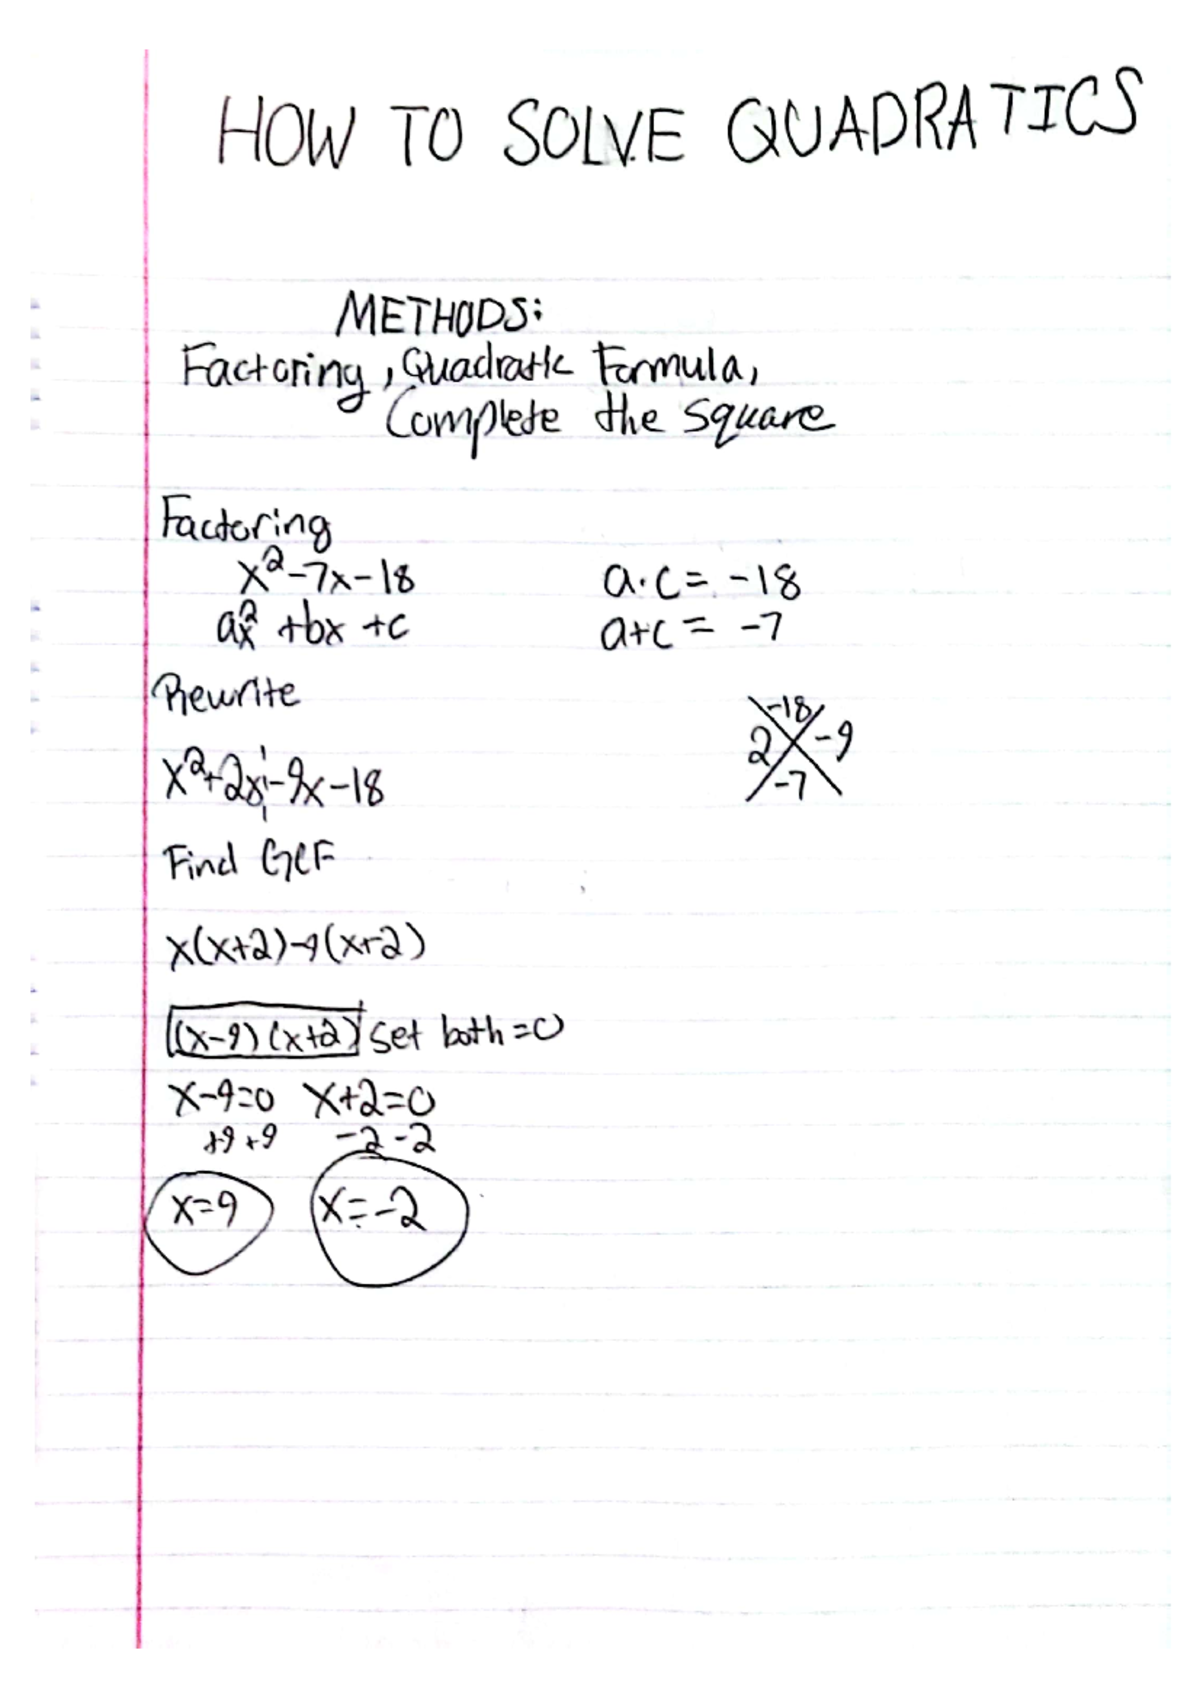 HOW TO SOLVE QUADRATICS
METHODS:
Factoring, Quadratic Formula,
Complete the Square
Factoring
x²-7x-18
a·c= -18
ax² +bx +c
a+c = -7
Rewrite
-18
2 -9
-7
x²+2x¦-9x-18
Find GCF
x(x+2)-9(x+2)
(x-9)(x+2) Set both =0
x-9=0 x+2=0
+9 +9 -2 -2
x=9 x=-2